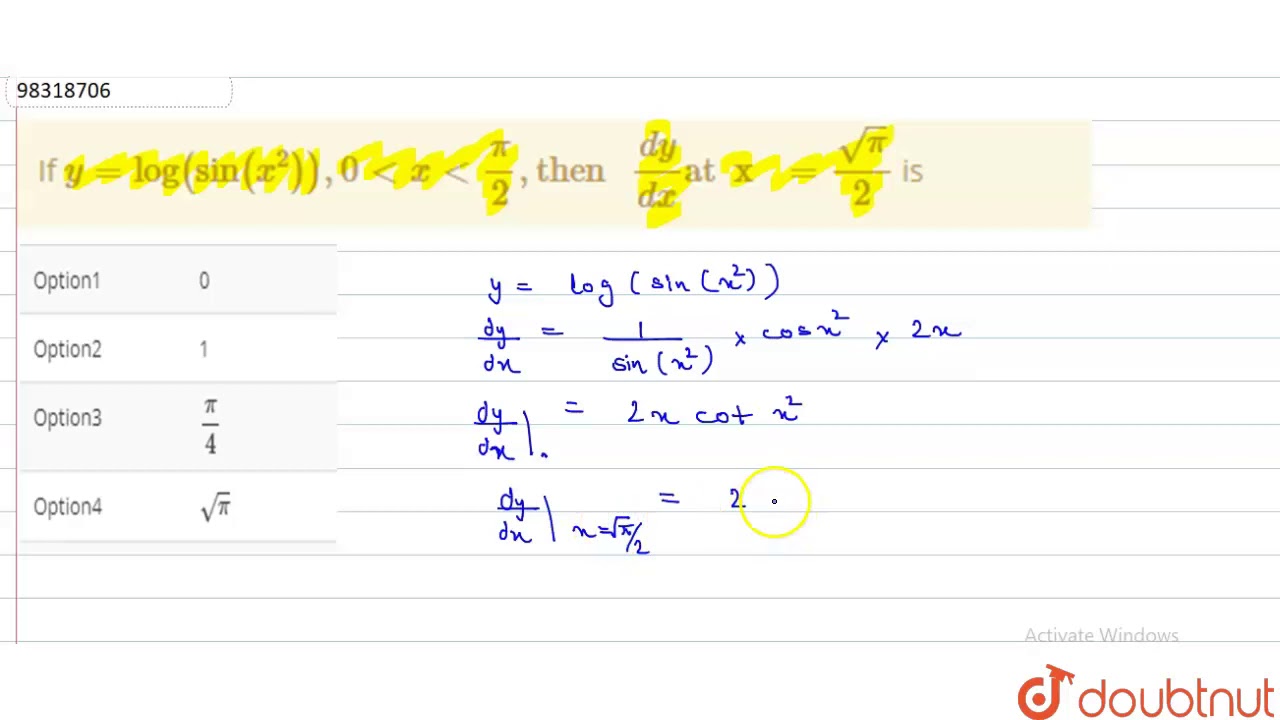 98318706
If y = log(sin(x²)), 0 < x < π/2, then dy/dx at x = √π/2 is
Option1 0
Option2 1
Option3 π/4
Option4 √π
y = log (sin (x²))
dy/dx = 1/sin (x²) × cos x² × 2x
dy/dx | = 2x cot x²
dy/dx | x=√π/2 = 2
Activate Windows
doubtnut